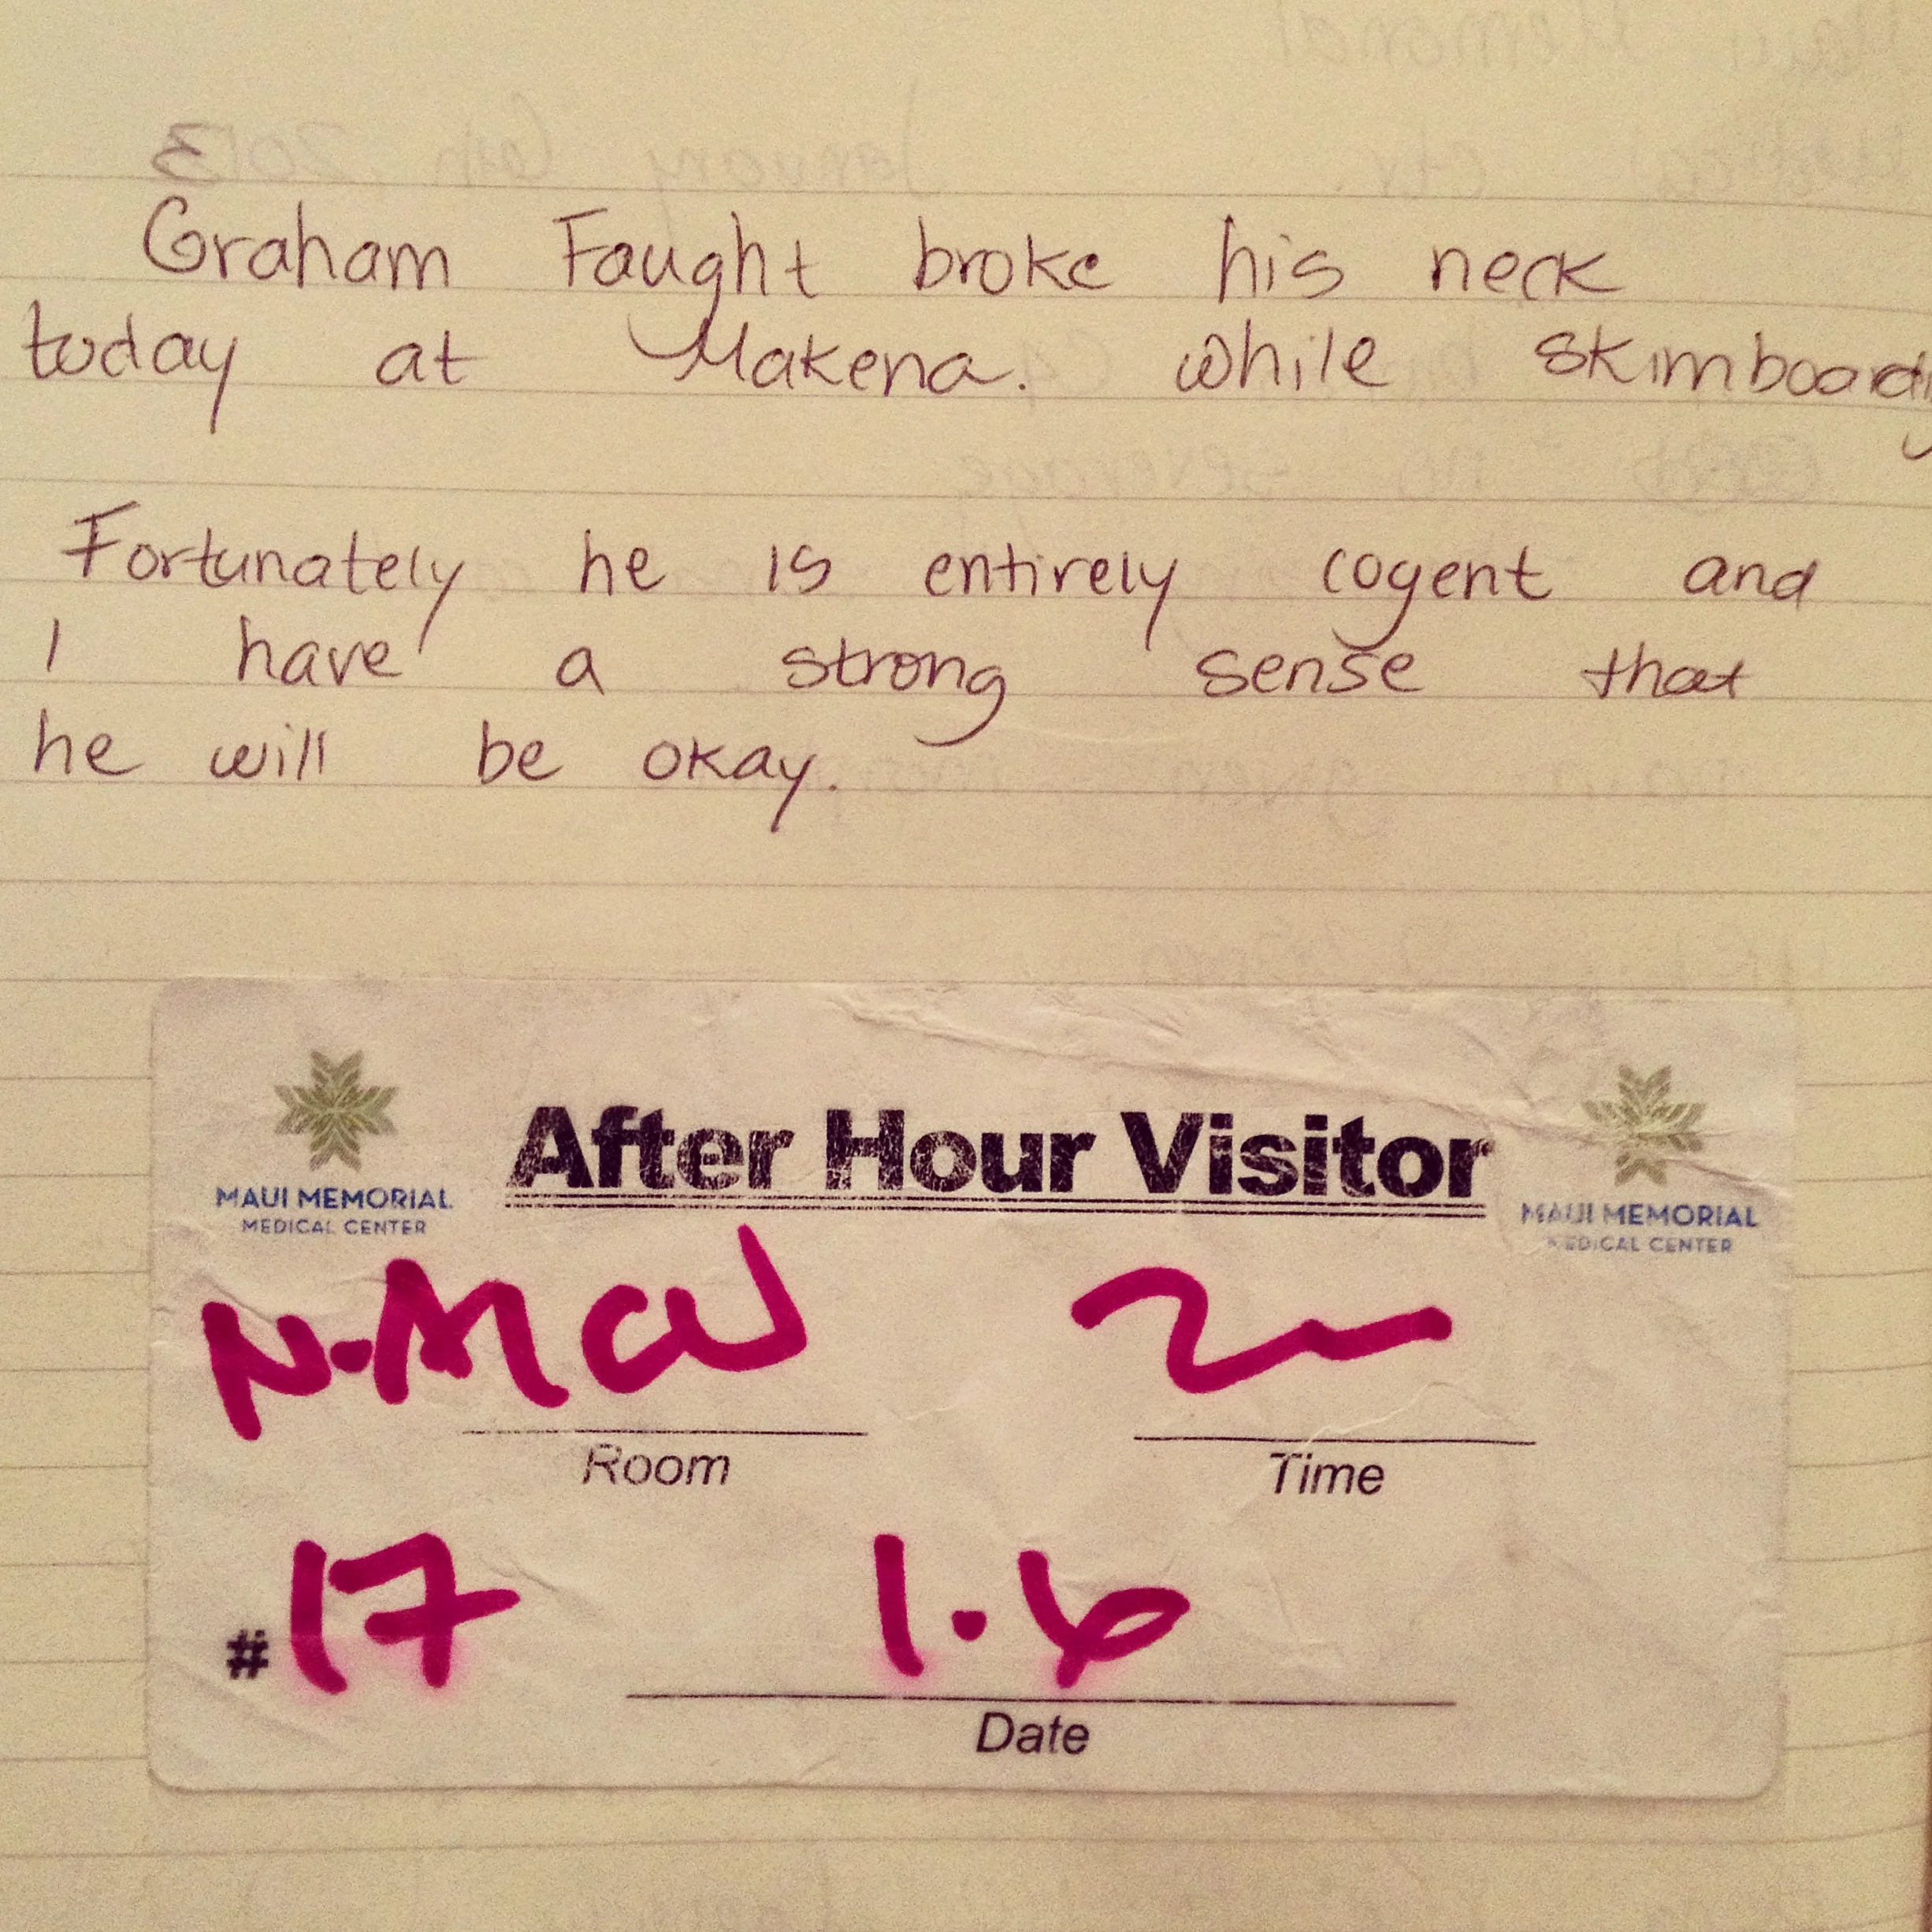 Graham Faught broke his neck
today at Makena. while skimboarding
Fortunately he is entirely cogent and
I have a strong sense that
he will be okay.
After Hour Visitor
MAUI MEMORIAL
MEDICAL CENTER
MAUI MEMORIAL
MEDICAL CENTER
N-MCU
Room
Time
#17
1.6
Date